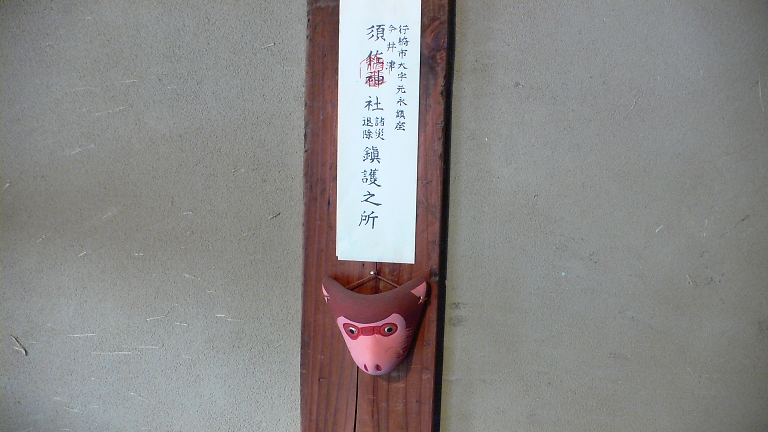 行橋市大字元永鎮座
今井津
須佐神社
諸災
退除
鎮護之所